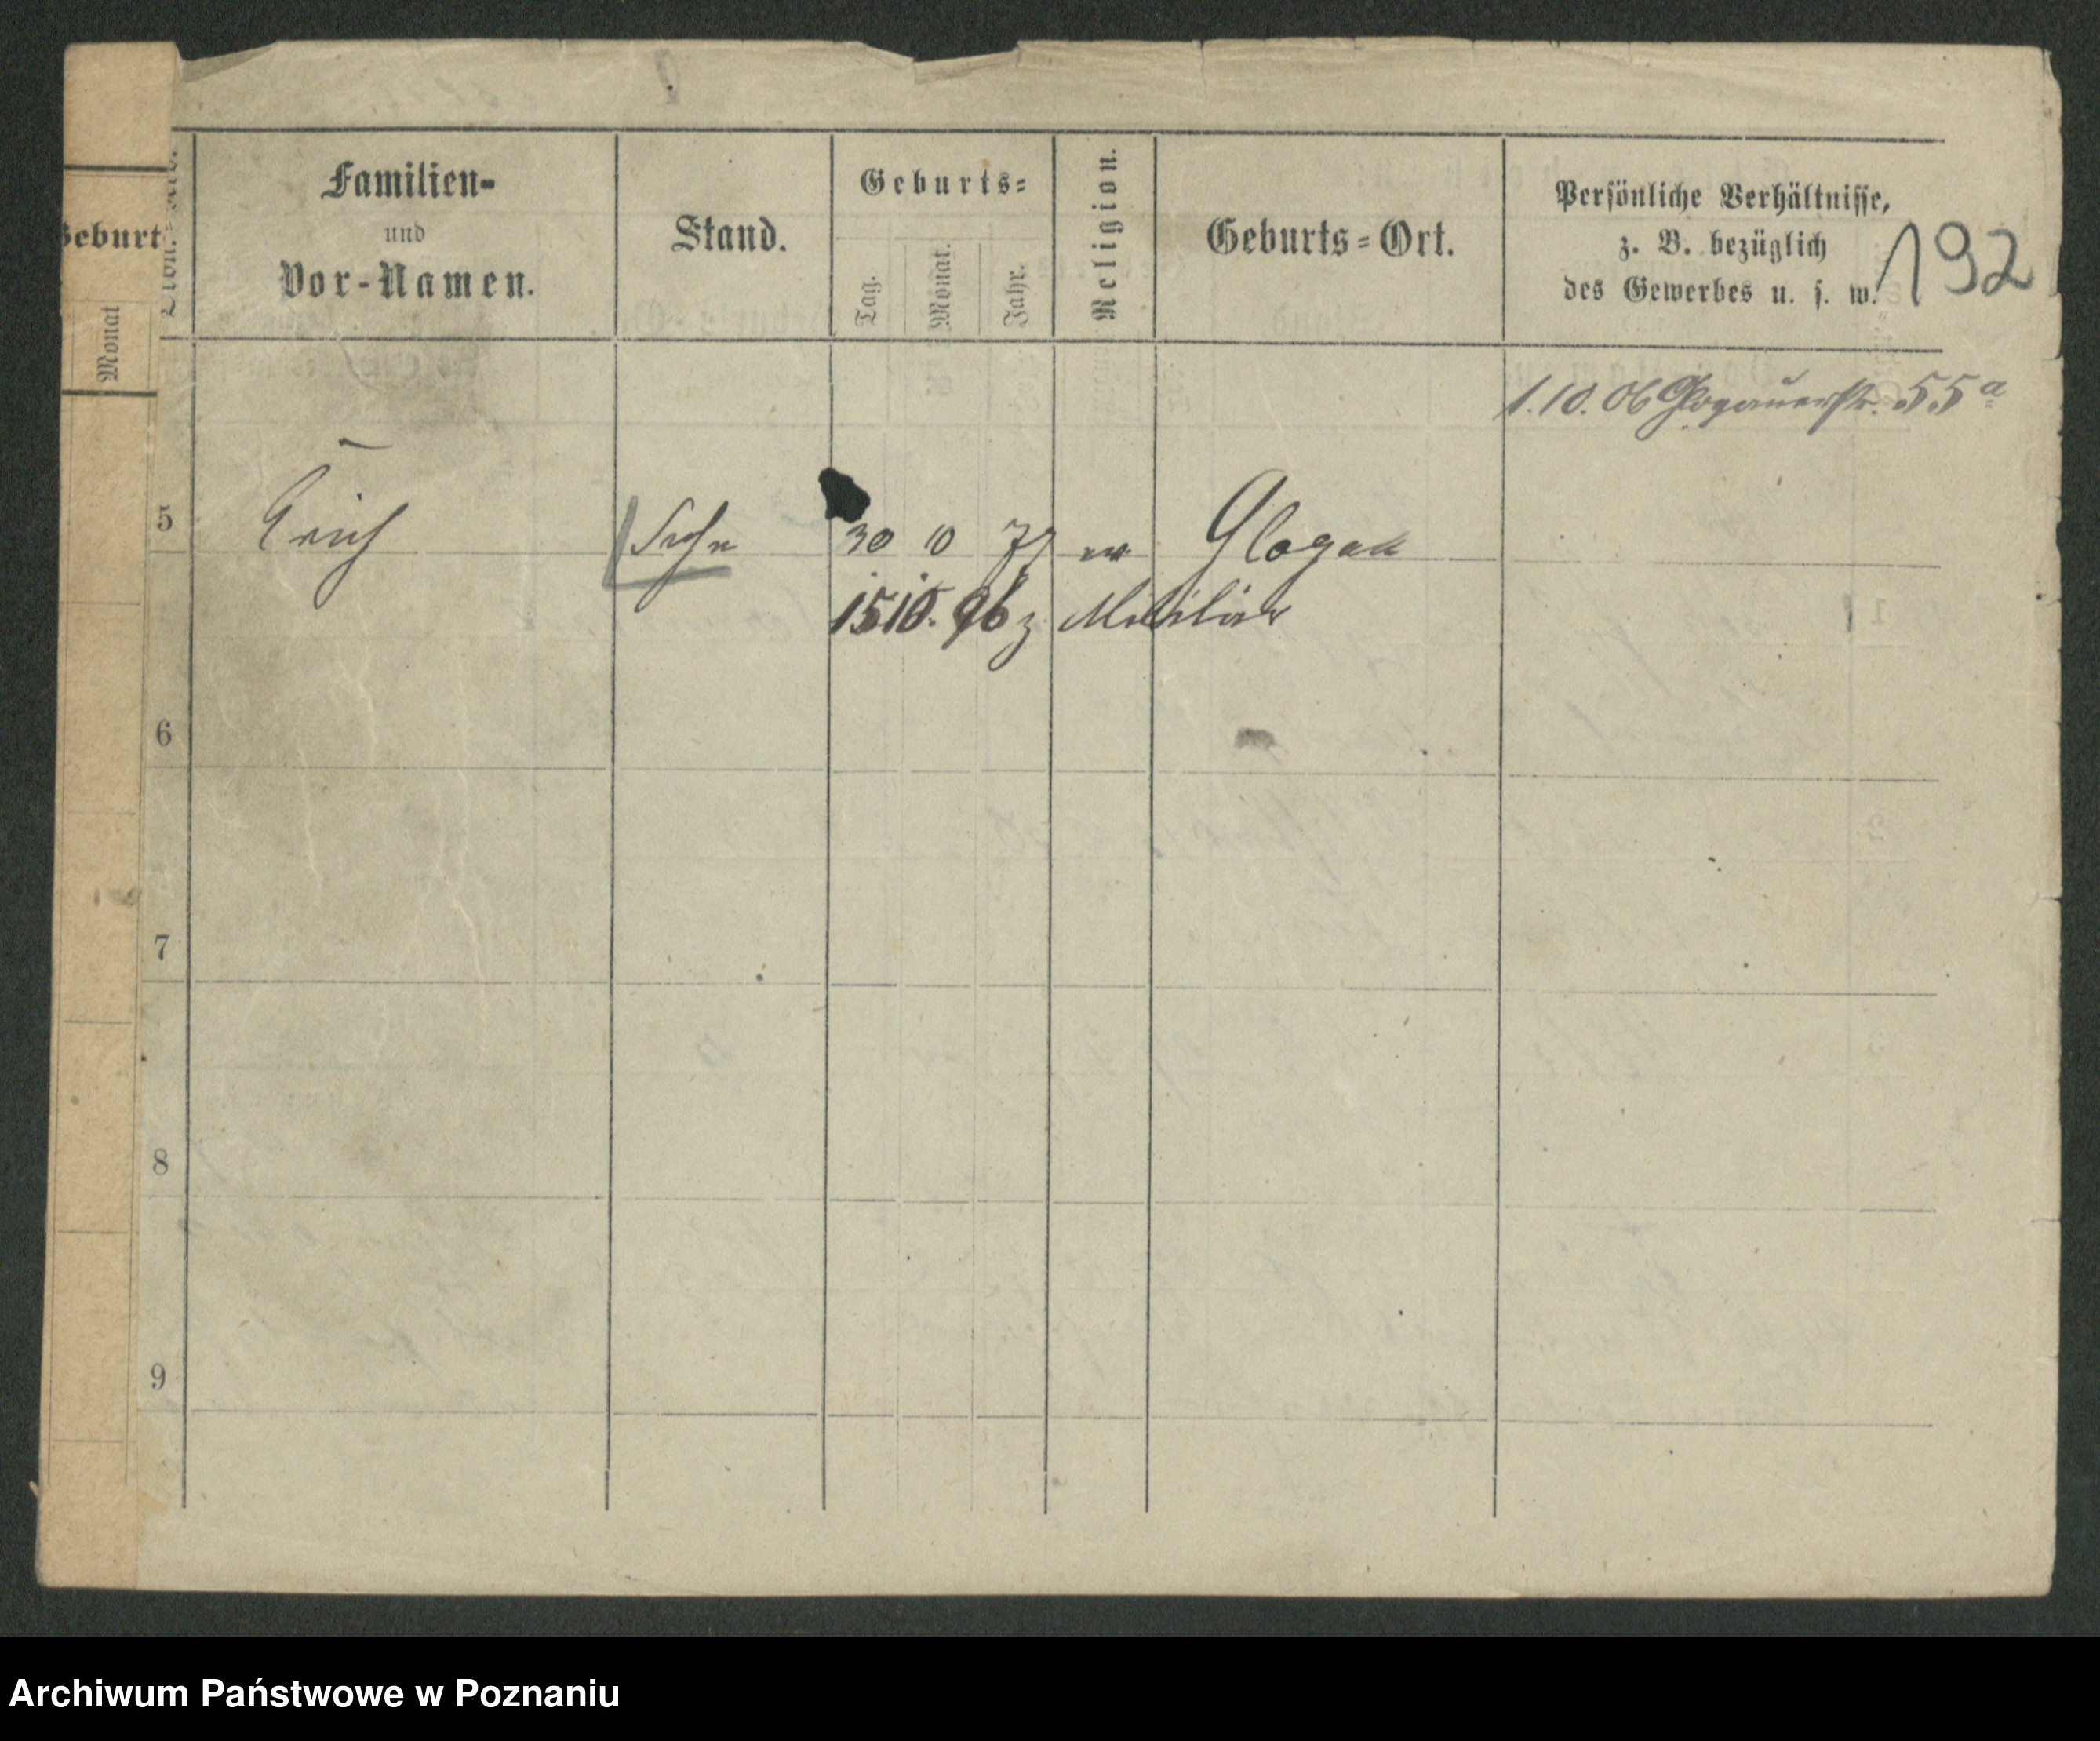 Geburt
Monat
Familien-
und
Vor-Namen.
Stand.
Geburts-
Tag.
Monat.
Jahr.
Religion.
Geburts-Ort.
Persönliche Verhältnisse,
z. B. bezüglich
des Gewerbes u. s. w.
192
1.10.06 Glogauerstr. 55a
5 Erich Sohn 30 10 77 ev Glogau
15 10. 96 z Militär
6
7
8
9
Archiwum Państwowe w Poznaniu